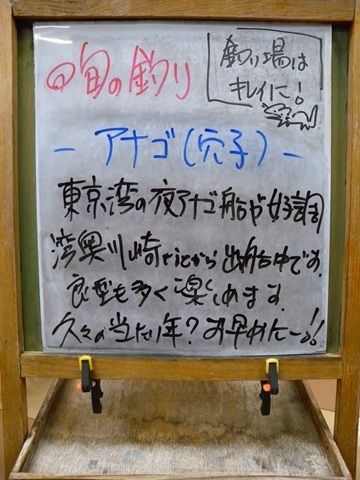 旬の釣り
釣り場は
キレイに!
-アナゴ(穴子)-
東京湾の夜アナゴ船が好調
湾奥川崎などから出船中です。
良型も多く楽しめます。
久々の当たり年?お早めにー!!